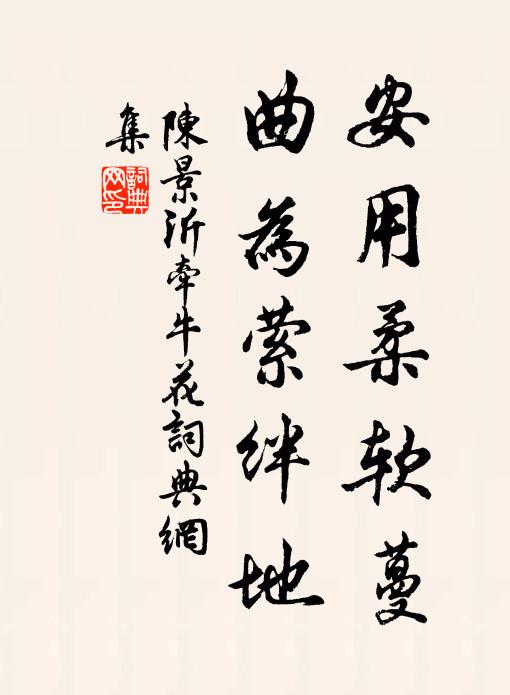 安用柔软蔓
曲為萦絆地
陳景沂牽牛花詞典網
集
詞典
网印